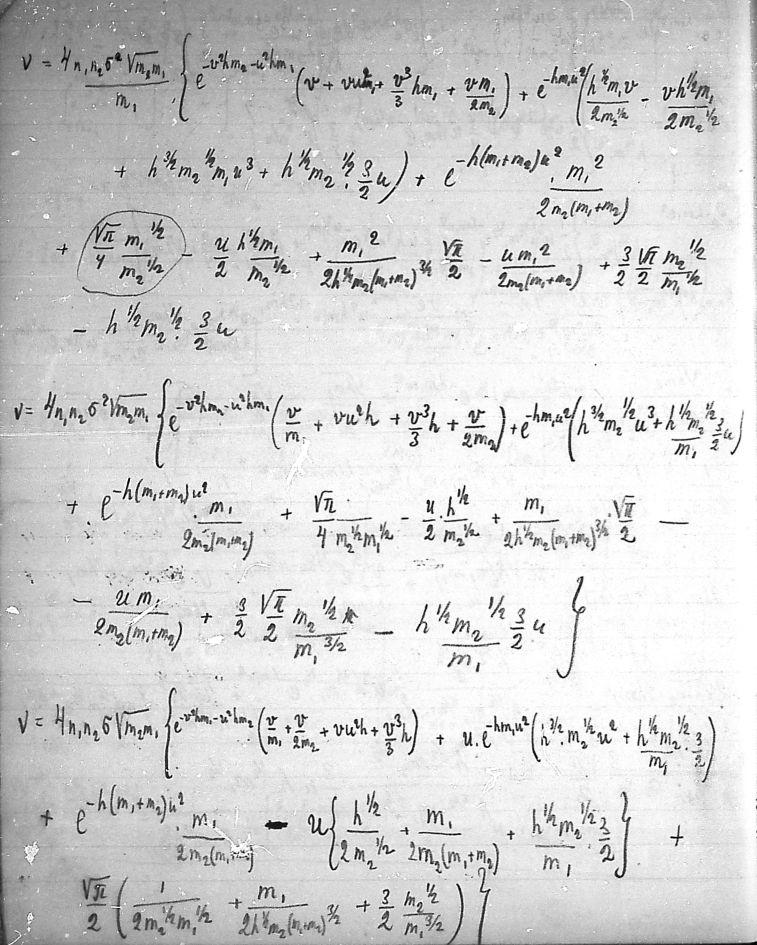 ν = 4n₁n₂σ²√m₂m₁ / m₁ · { e^(-v²hm₂-u²hm₁) (v + vu²m₁ + v³/3 hm₁ + vm₁/2m₂) + e^(-hm₁u²) (h^(1/2)m₁v / 2m₂^(1/2) - vh^(1/2)m₁ / 2m₂^(1/2)
+ h^(3/2) m₂^(1/2) m₁u³ + h^(1/2) m₂^(1/2) · 3/2 u) + e^(-h(m₁+m₂)u²) · m₁² / 2m₂(m₁+m₂)
+ √π/4 m₁^(1/2)/m₂^(1/2) - u/2 h^(1/2)m₁/m₂^(1/2) + m₁² / 2h^(1/2)m₂(m₁+m₂)^(3/2) √π/2 - um₁² / 2m₂(m₁+m₂) + 3/2 √π/2 m₂^(1/2)/m₁^(1/2)
- h^(1/2) m₂^(1/2) · 3/2 u
ν = 4n₁n₂σ²√m₂m₁ { e^(-v²hm₂-u²hm₁) (v/m₁ + vu²h + v³/3 h + v/2m₂) + e^(-hm₁u²) (h^(3/2) m₂^(1/2) u³ + h^(1/2)m₂^(1/2)/m₁ 3/2 u)
+ e^(-h(m₁+m₂)u²) · m₁ / 2m₂(m₁+m₂) + √π / 4m₂^(1/2)m₁^(1/2) - u/2 · h^(1/2)/m₂^(1/2) + m₁ / 2h^(1/2)m₂(m₁+m₂)^(3/2) · √π/2 -
- um₁ / 2m₂(m₁+m₂) + 3/2 √π/2 m₂^(1/2) / m₁^(3/2) - h^(1/2)m₂^(1/2)/m₁ 3/2 u }
ν = 4n₁n₂σ√m₂m₁ { e^(-v²hm₁-u²hm₂) (v/m₁ + v/2m₂ + vu²h + v³/3 h) + u · e^(-hm₁u²) (h^(3/2) · m₂^(1/2) u² + h^(1/2)m₂^(1/2)/m₁ · 3/2)
+ e^(-h(m₁+m₂)u²) · m₁ / 2m₂(m₁+m₂) - u { h^(1/2) / 2m₂^(1/2) + m₁ / 2m₂(m₁+m₂) + h^(1/2)m₂^(1/2)/m₁ · 3/2 } +
√π/2 ( 1 / 2m₂^(1/2)m₁^(1/2) + m₁ / 2h^(1/2)m₂(m₁+m₂)^(3/2) + 3/2 m₂^(1/2)/m₁^(3/2) ) }